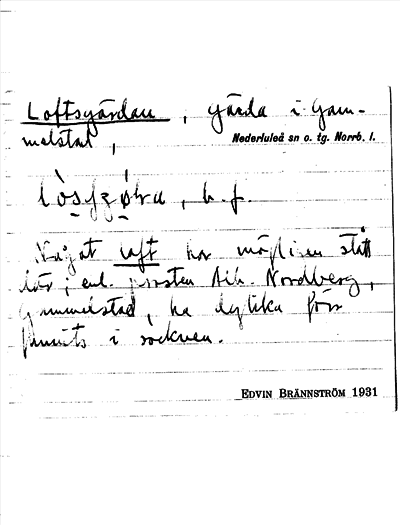 Loftsgärdan, gärda i Gam-
melstad, Nederluleå sn o. tg. Norrb. l.
b. f.
Något loft har möjligen stått
där; enl. prosten Alb. Nordberg,
Gammelstad, ha dylika förr
funnits i socknen.
EDVIN BRÄNNSTRÖM 1931